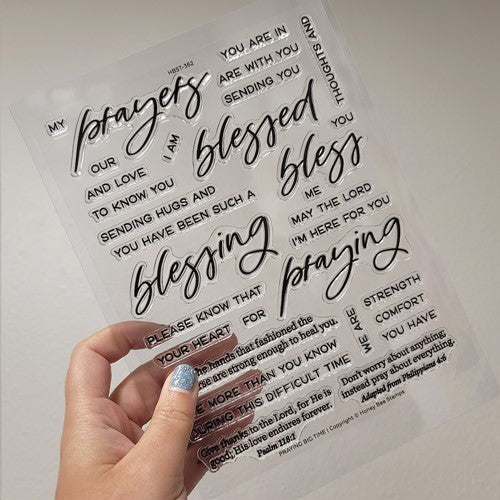 HBST-362
YOU ARE IN
ARE WITH YOU
SENDING YOU
THOUGHTS AND
MY
prayers
OUR
I AM
blessed
YOU
AND LOVE
bless
TO KNOW YOU
ME
SENDING HUGS AND
MAY THE LORD
YOU HAVE BEEN SUCH A
I'M HERE FOR YOU
blessing
praying
PLEASE KNOW THAT
STRENGTH
YOUR HEART
FOR
WE ARE
COMFORT
YOU HAVE
the hands that fashioned the
are strong enough to heal you.
MORE THAN YOU KNOW
DURING THIS DIFFICULT TIME
Don't worry about anything,
instead pray about everything.
Adapted from Philippians 4:6
Give thanks to the Lord, for He is
good; His love endures forever.
Psalm 118:1
PRAYING BIG TIME | Copyright © Honey Bee Stamps